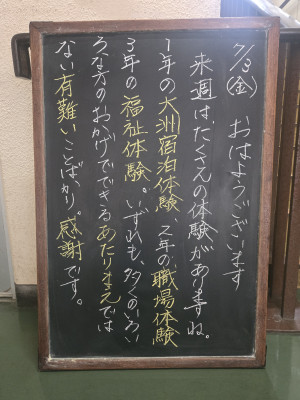 7/3(金) おはようございます
来週はたくさんの体験がありますね。
1年の大洲宿泊体験、2年の職場体験
3年の福祉体験。いずれも、多くのいろい
ろな方のおかげでできるあたりまえでは
ない有難いことばかり。感謝です。